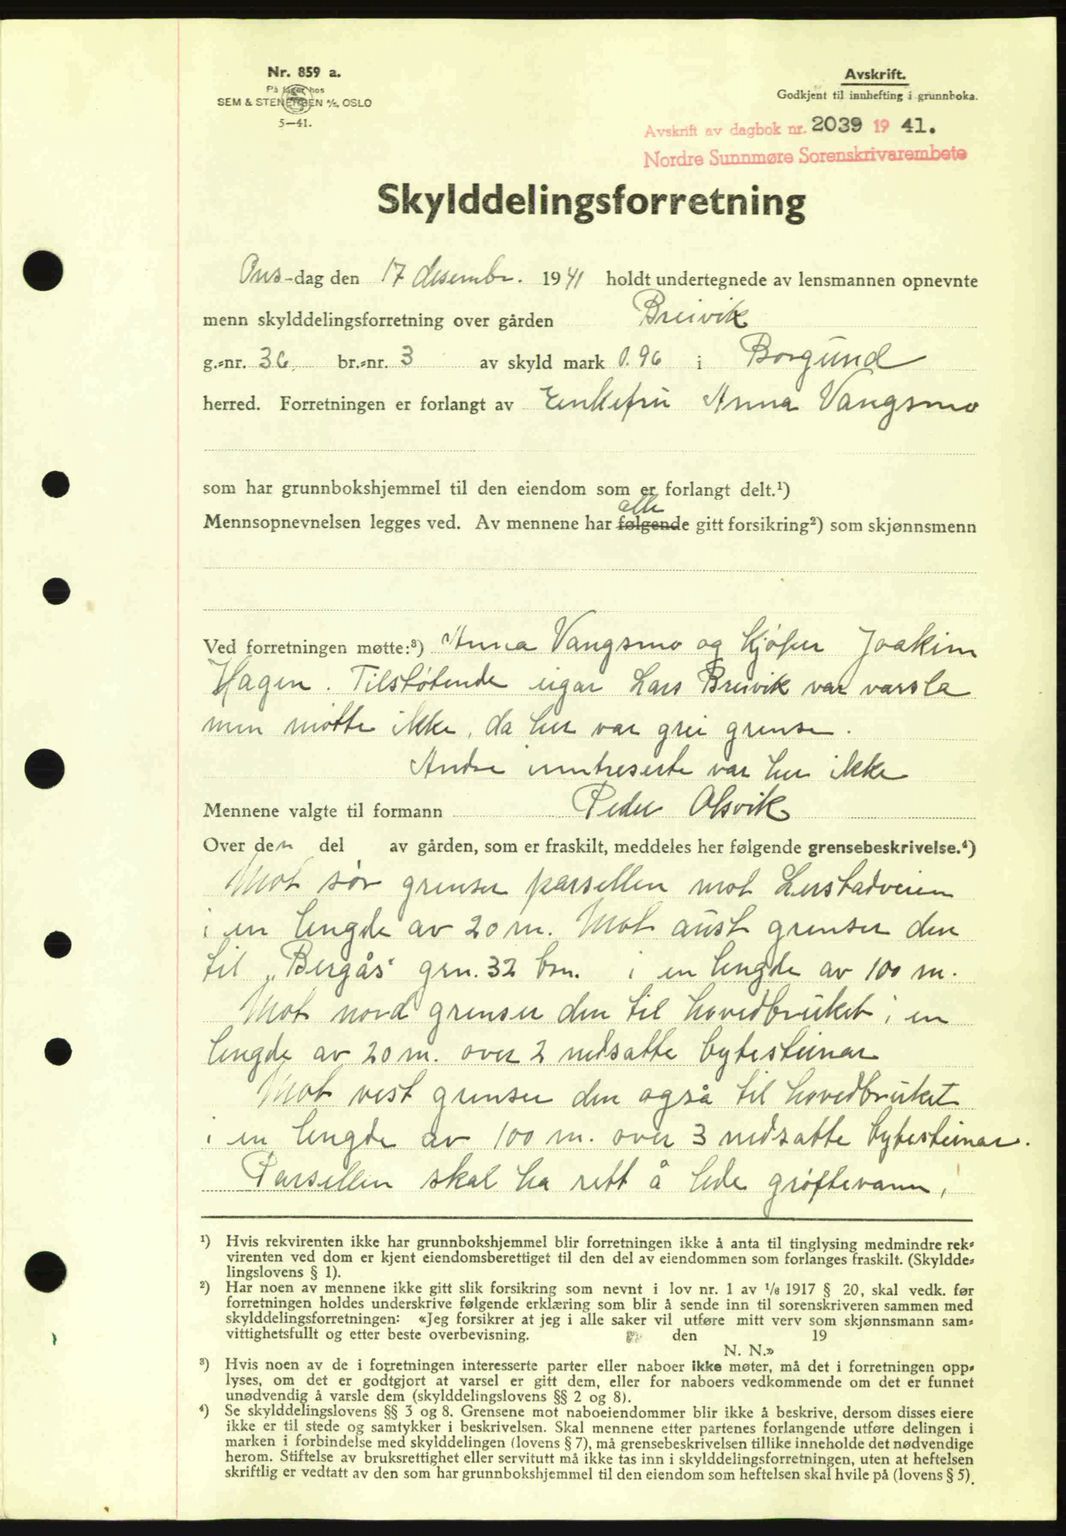 Nr. 859 a.
På lager hos
SEM & STENERSEN A/S, OSLO
5—41.
Avskrift.
Godkjent til innhefting i grunnboka.
Avskrift av dagbok nr. 2039 19 41.
Nordre Sunnmøre Sorenskrivarembete
Skylddelingsforretning
Ons-dag den 17 desembr. 1941 holdt undertegnede av lensmannen opnevnte
menn skylddelingsforretning over gården Breivik
g.-nr. 36 br.-nr. 3 av skyld mark 0.96 i Borgund
herred. Forretningen er forlangt av Enkefru Anna Vangsmo
som har grunnbokshjemmel til den eiendom som er forlangt delt.¹)
alle
Mennsopnevnelsen legges ved. Av mennene har følgende gitt forsikring²) som skjønnsmenn
Ved forretningen møtte:³) Anna Vangsmo og kjøper Joakim
Hagen. Tilstøtende eigar Lars Breivik var varsla
men møtte ikke, da her var grei grense.
Andre inntreserte var her ikke
Mennene valgte til formann Peder Olsvik
Over den del av gården, som er fraskilt, meddeles her følgende grensebeskrivelse.⁴)
Mot sør grenser parsellen mot Lerstadveien
i en lengde av 20 m. Mot aust grenser den
til „Bergås" grn. 32 brn. i en lengde av 100 m.
Mot nord grenser den til hovedbruket i en
lengde av 20 m. over 2 nedsatte bytesteinar
Mot vest grenser den også til hovedbruket
i en lengde av 100 m. over 3 nedsatte bytesteinar.
Parsellen skal ha rett å lede grøftevann,
¹) Hvis rekvirenten ikke har grunnbokshjemmel blir forretningen ikke å anta til tinglysing medmindre rek-
virenten ved dom er kjent eiendomsberettiget til den del av eiendommen som forlanges fraskilt. (Skyldde-
lingslovens § 1).
²) Har noen av mennene ikke gitt slik forsikring som nevnt i lov nr. 1 av 1/6 1917 § 20, skal vedk. før
forretningen holdes underskrive følgende erklæring som blir å sende inn til sorenskriveren sammen med
skylddelingsforretningen: «Jeg forsikrer at jeg i alle saker vil utføre mitt verv som skjønnsmann sam-
vittighetsfullt og etter beste overbevisning. den 19
N. N.»
³) Hvis noen av de i forretningen interesserte parter eller naboer ikke møter, må det i forretningen opp-
lyses, om det er godtgjort at varsel er gitt dem, eller for naboers vedkommende om det er funnet
unødvendig å varsle dem (skylddelingslovens §§ 2 og 8).
⁴) Se skylddelingslovens §§ 3 og 8. Grensene mot naboeiendommer blir ikke å beskrive, dersom disses eiere
ikke er til stede og samtykker i beskrivelsen. Skal mennene etter partenes forlangende utføre delingen i
marken i forbindelse med skylddelingen (lovens § 7), må grensebeskrivelsen tillike inneholde det nødvendige
herom. Stiftelse av bruksrettighet eller servitutt må ikke tas inn i skylddelingsforretningen, uten at heftelsen
skriftlig er vedtatt av den som har grunnbokshjemmel til den eiendom som heftelsen skal hvile på (lovens § 5).